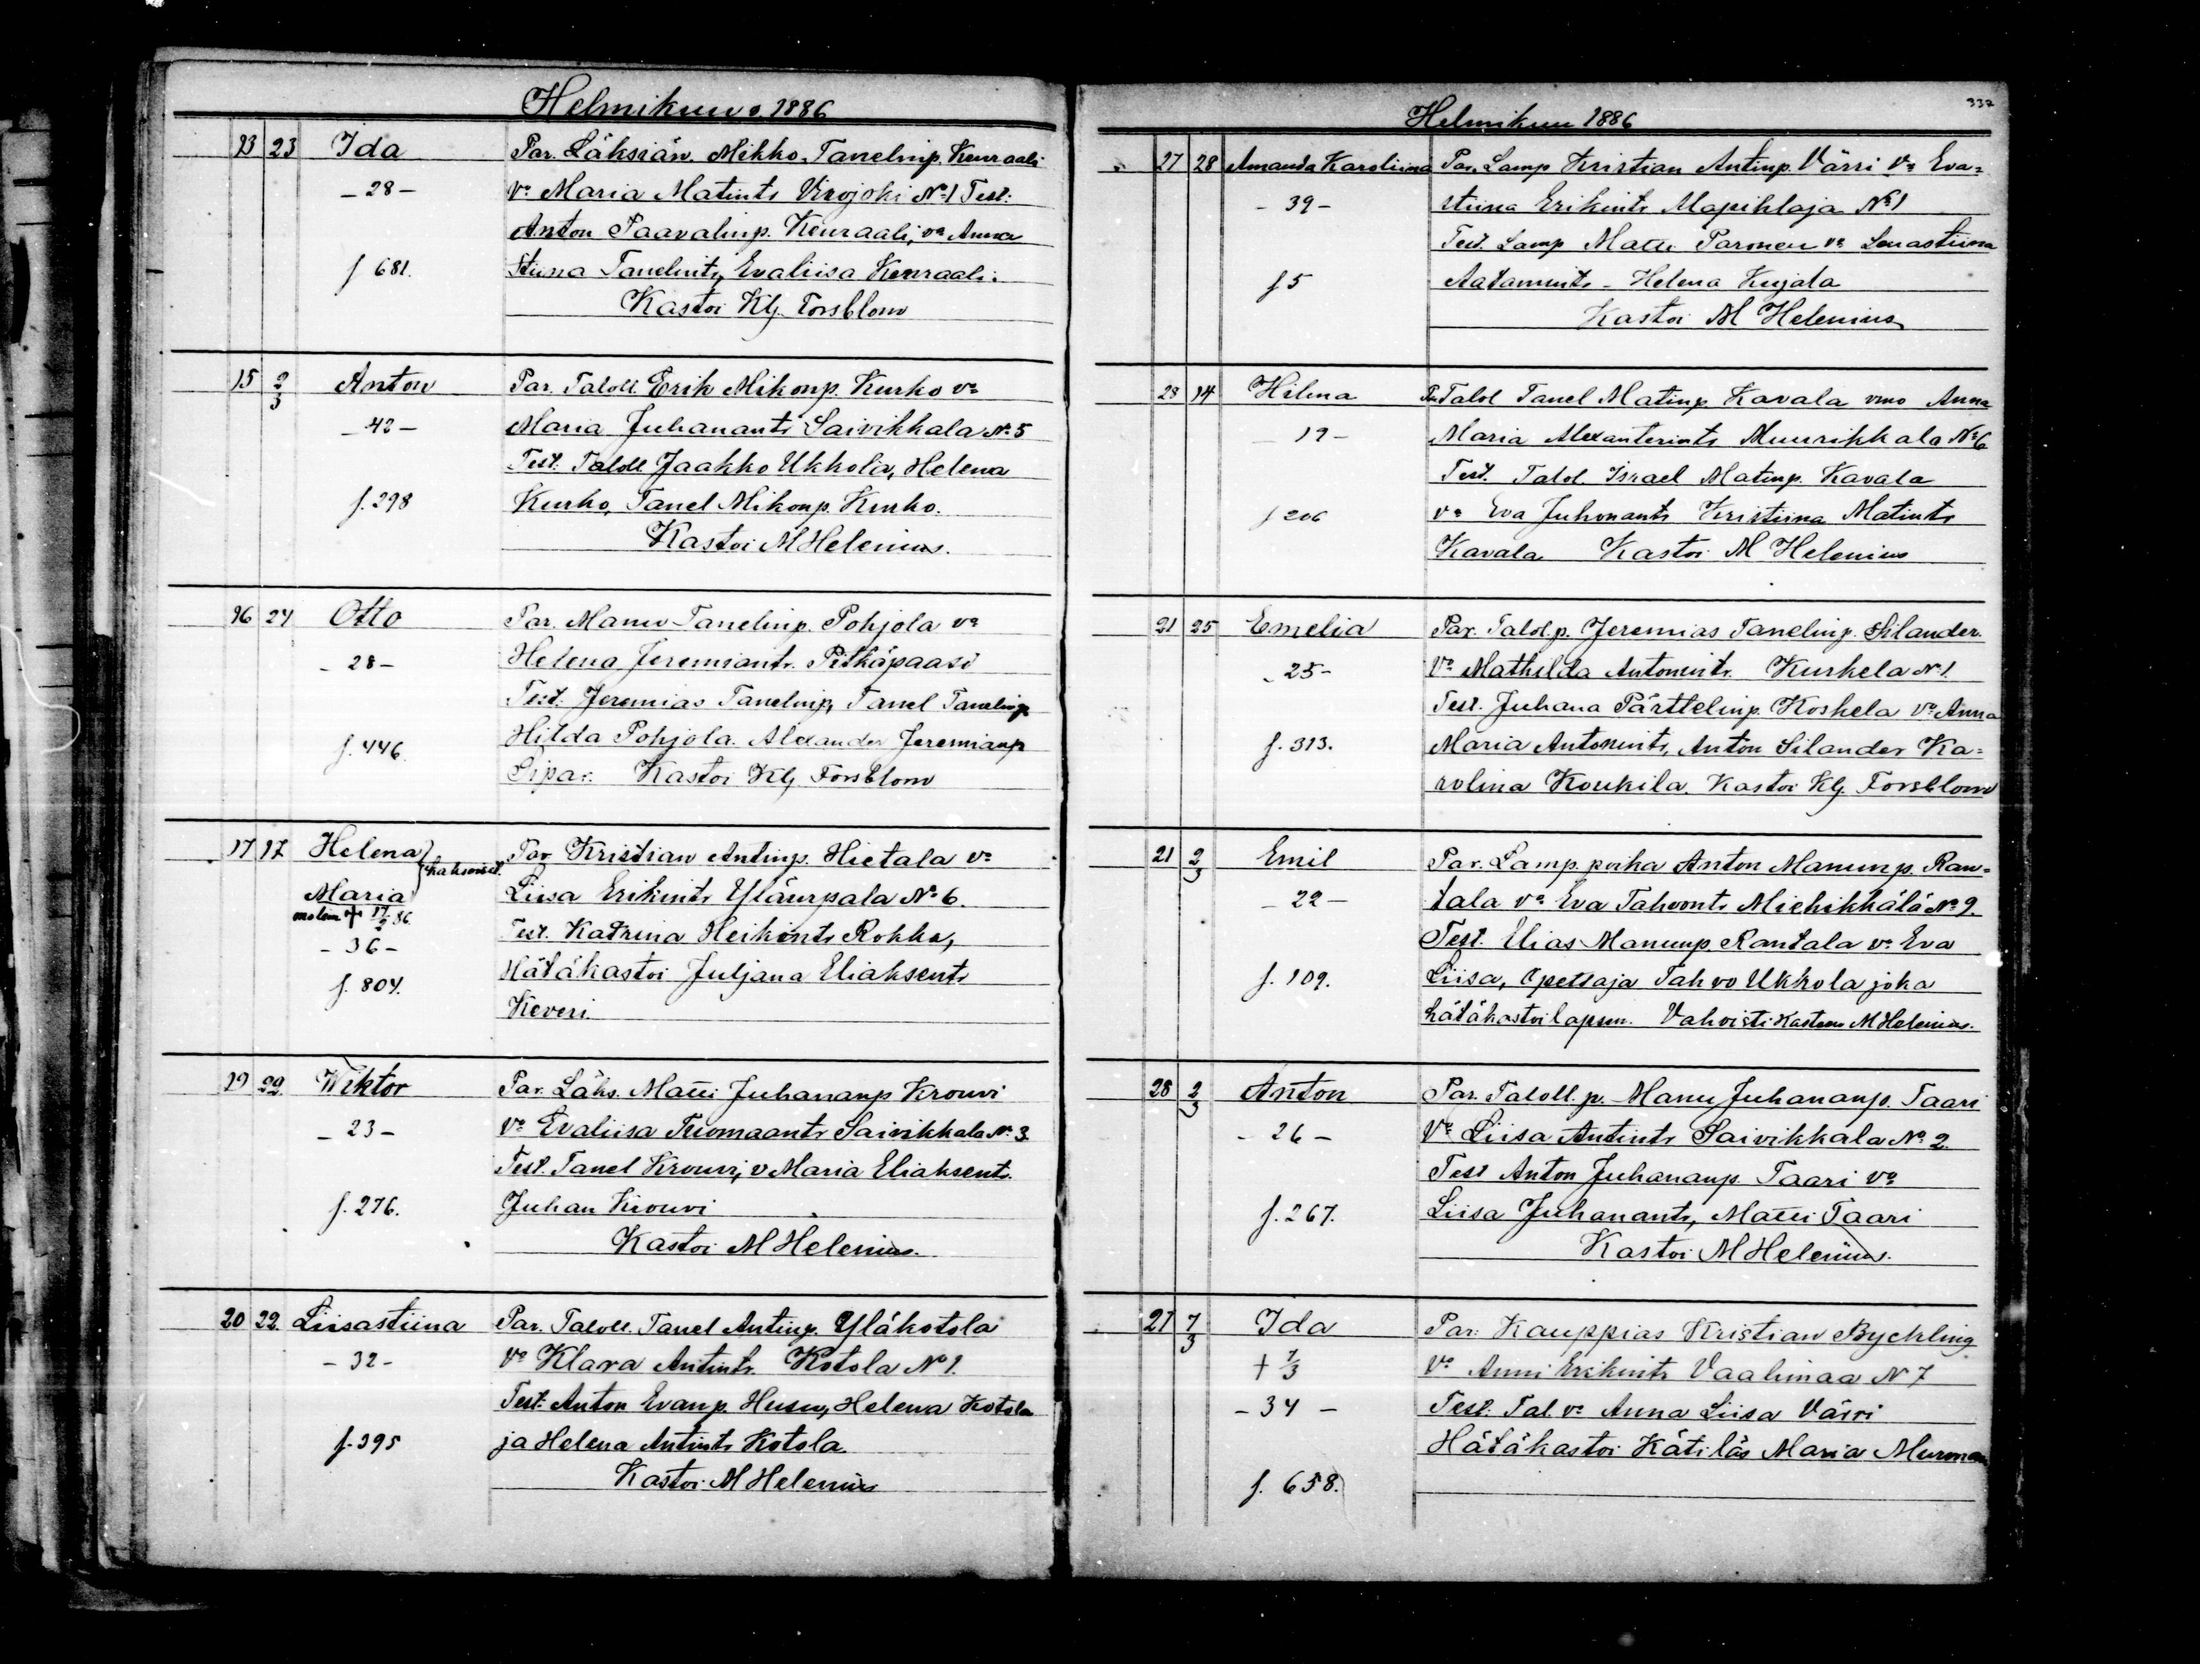 Helmikuu 1886
23 23 Ida Par. Läksiän. Mikko Tanelinp. Kenraali
- 28 - Vo Maria Matints Virojoki No 1 Test:
Anton Paavalinp. Kenraali, vo Anna
f 681. Stiina Tanelints, Evaliisa Kenraali.
Kastoi Klj. Forsblom
15 2/3 Anton Par. Taloll Erik Mikonp. Kurko vo
- 42 - Maria Juhanants Saivikkala No 5
Test. Taloll Jaakko Ukkola, Helena
f. 298 Kurko, Tanel Mikonp. Kurko.
Kastoi M Helenius.
16 24 Otto Par. Manu Tanelinp. Pohjola vo
- 28 - Helena Jeremiants. Pitkäpaasi
Test. Jeremias Tanelinp, Tanel Tanelinp
f. 446. Hilda Pohjola. Alexander Jeremianp
Sipar. Kastoi Klj. Forsblom
17 17 Helena } kaksoiset. Par Kristian Antinp. Hietala vo
Maria Liisa Erikints Yläurpala No 6.
molem + 17/2 86.
- 36 - Test. Katriina Heikints Rokka,
f. 804. Hätäkastoi Juljana Eliaksents
Keveri.
19 22 Wiktor Par. Läks. Matti Juhananp Krouvi
- 23 - Vo Evaliisa Tuomaants Saivikkala No 3.
Test. Tanel Krouvi, v Maria Eliaksents.
f. 276. Juhan Krouvi
Kastoi M Helenius.
20 22 Liisastiina Par. Taloll. Tanel Antinp. Yläkotola
- 32 - Vo Klara Antints. Kotola No 1.
Test: Anton Evanp. Husu, Helena Kotola
f. 395 ja Helena Antints Kotola.
Kastoi M Helenius
337
Helmikuu 1886
27 28 Amanda Karoliina Par. Lamp Kristian Antinp. Värri vo Eva-
- 39 - stiina Erikints Mäpiklaja No 1
Test. Lamp Matti Paronen vo Leenastiina
f 5 Aatamints - Helena Kujala
Kastoi M Helenius
28 14 Hilma Par Talol Tanel Matinp. Kavala vmo Anna
- 19 - Maria Alexanterints Muurikkala No 6
Test. Talol. Israel Matinp. Kavala
f 206 vo Eva Juhonants Kristiina Matints
Kavala Kastoi M Helenius
21 25 Emelia Par. Talol.p. Jeremias Tanelinp. Silander.
- 25 - Vo Mathilda Antonints. Kurkela No 1.
Test. Juhana Pärttelinp. Koskela vo Anna
f. 313. Maria Antonints, Anton Silander Ka-
rolina Koukila. Kastoi Klj. Forsblom
21 2/3 Emil Par. Lamp. poika Anton Manunp. Ran-
- 22 - tala vo Eva Tahvonts Miehikkälä No 9.
Test. Elias Manunp. Rantala vo Eva
f. 109. Liisa, Opettaja Tahvo Ukkola joka
hätäkastoi lapsen. Vahvisti Kasteen M Helenius.
28 2/3 Anton Par. Taloll. p. Manu Juhananp. Taari
- 26 - Vo Liisa Antints Saivikkala No 2.
Test Anton Juhananp. Taari vo
f. 267. Liisa Juhanants, Matti Taari
Kastoi M Helenius.
27 7/3 Ida Par. Kauppias Kristian Bychling
+ 7/3 Vo Anni Erikints Vaalimaa N 7
- 34 - Test. Tal. vo Anna Liisa Värri
Hätäkastoi Kätilös Maria Murman
f. 658.